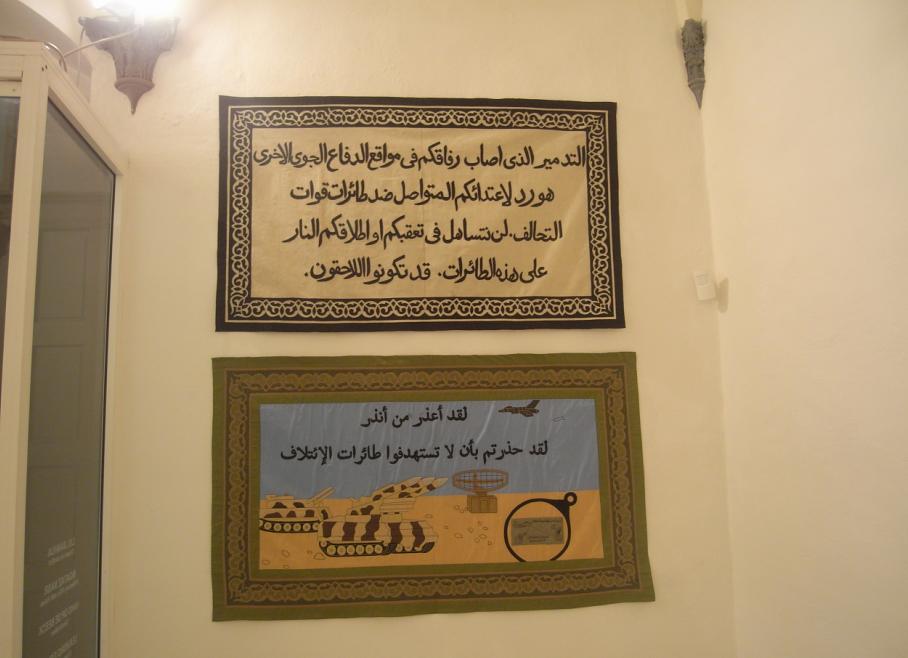 التدمير الذي اصاب رفاقكم في مواقع الدفاع الجوي الاخرى
هو رد لاعتدائكم المتواصل ضد طائرات قوات
التحالف. لن نتساهل في تعقبكم او اطلاقكم النار
على هذه الطائرات. قد تكونوا اللاحقون.
لقد أعذر من أنذر
لقد حذرتم بأن لا تستهدفوا طائرات الإئتلاف